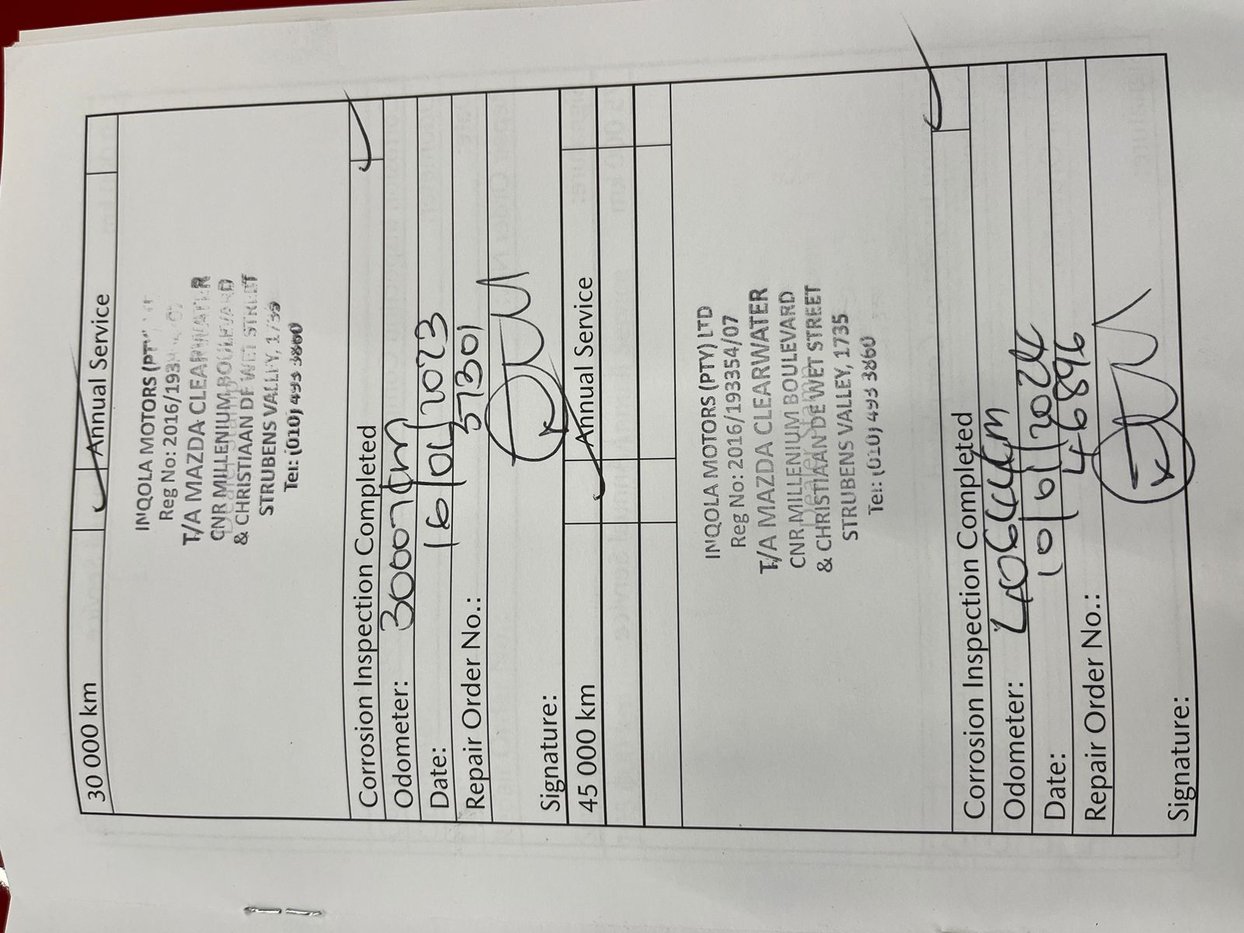 30 000 km Annual Service
INQOLA MOTORS (PTY
Reg No: 2016/193
T/A MAZDA CLEARWATER
CNR MILLENIUM BOULEVARD
& CHRISTIAAN DE WET STREET
STRUBENS VALLEY, 1735
Tel: (010) 493 3860
Corrosion Inspection Completed
Odometer: 30007km
Date: 16/01/2023
Repair Order No.: 37301
Signature:
45 000 km Annual Service
INQOLA MOTORS (PTY) LTD
Reg No: 2016/193354/07
T/A MAZDA CLEARWATER
CNR MILLENIUM BOULEVARD
& CHRISTIAAN DE WET STREET
STRUBENS VALLEY, 1735
Tel: (010) 493 3860
Corrosion Inspection Completed
Odometer: 40644km
Date: 10/01/2024
Repair Order No.: 46896
Signature: